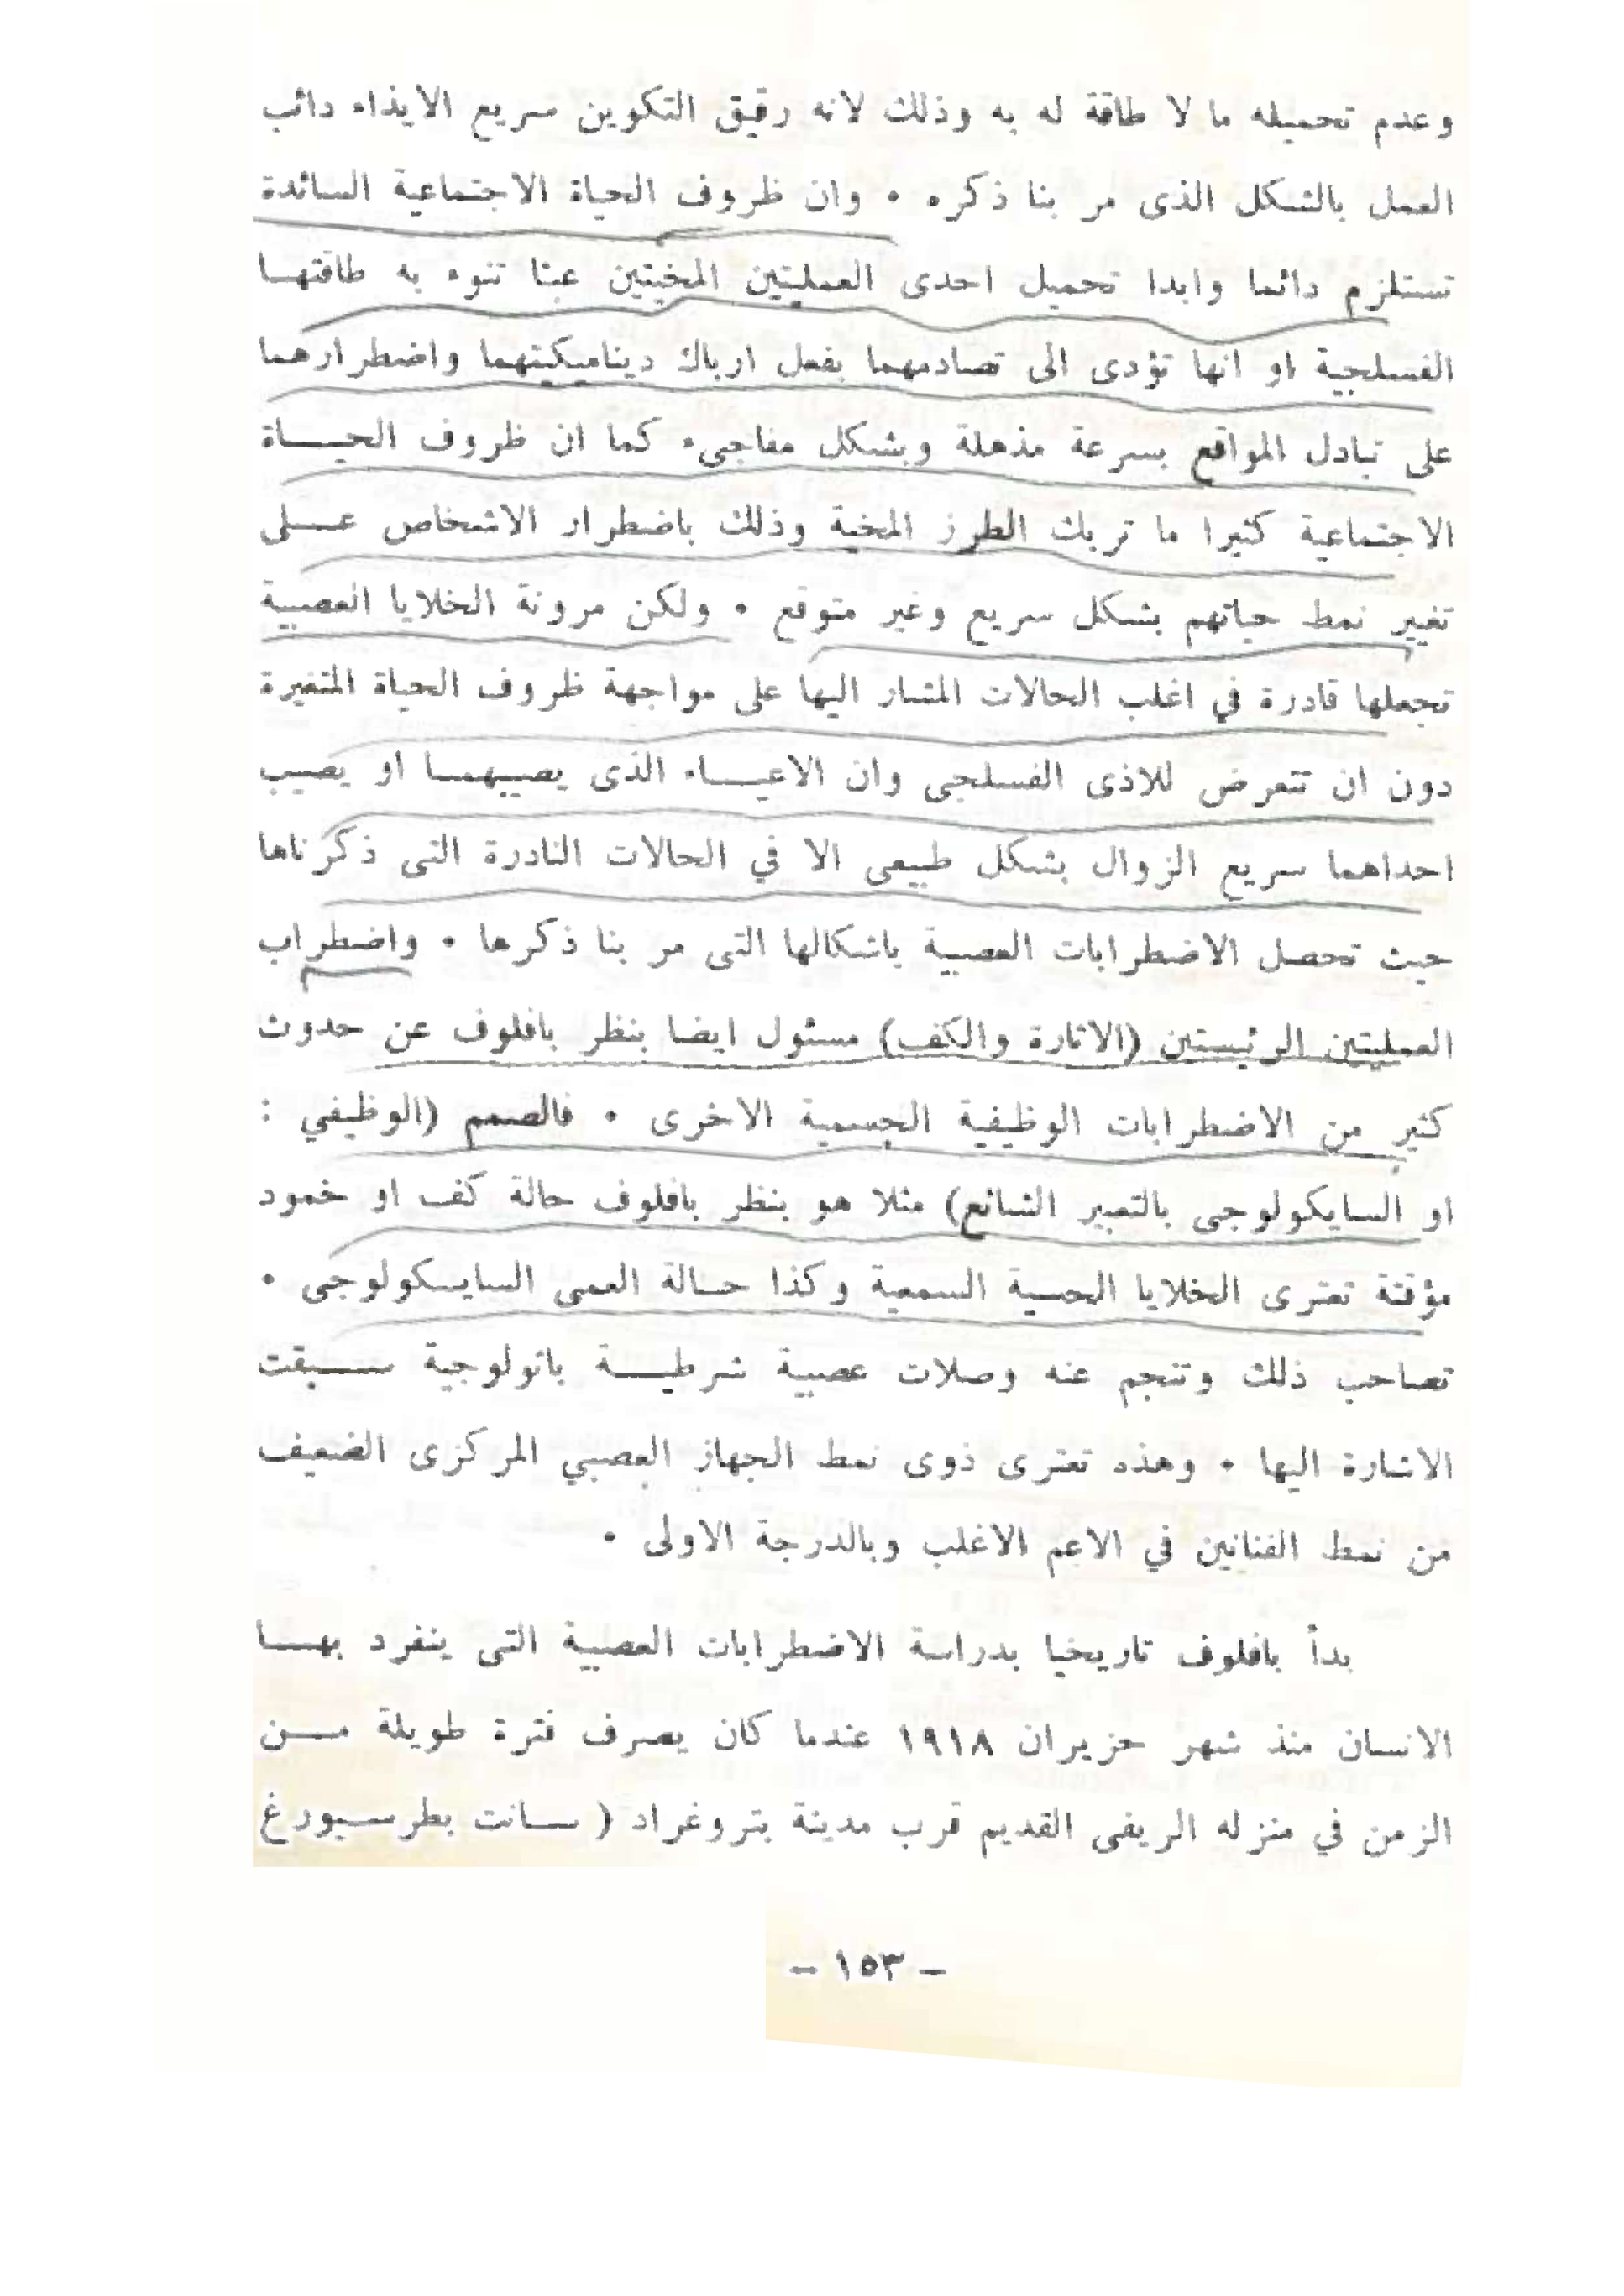 وعدم تحميله ما لا طاقة له به وذلك لانه رقيق التكوين سريع الايذاء دائب
العمل بالشكل الذى مر بنا ذكره • وان ظروف الحياة الاجتماعية السائدة
تستلزم دائما وابدا تحميل احدى العمليتين المخيتين عبئا تنوء به طاقتهـا
الفسلجية او انها تؤدى الى تصادمهما بفعل ارباك ديناميكيتهما واضطرارهما
على تبادل المواقع بسرعة مذهلة وبشكل مفاجىء كما ان ظروف الحيـــاة
الاجتماعية كثيرا ما تربك الطرز المخية وذلك باضطرار الاشخاص عـــلى
تغيير نمط حياتهم بشكل سريع وغير متوقع • ولكن مرونة الخلايا العصبية
تجعلها قادرة في اغلب الحالات المشار اليها على مواجهة ظروف الحياة المتغيرة
دون ان تتعرض للاذى الفسلجى وان الاعيـــاء الذى يصيبهمـا او يصيب
احداهما سريع الزوال بشكل طبيعى الا في الحالات النادرة التى ذكرناها
حيث تحصل الاضطرابات العصبية باشكالها التى مر بنا ذكرها • واضطراب
العمليتين الرئيستين (الاثارة والكف) مسئول ايضا بنظر بافلوف عن حدوث
كثير من الاضطرابات الوظيفية الجسمية الاخرى • فالصمم (الوظيفي :
او السايكولوجى بالتعبير الشائع) مثلا هو بنظر بافلوف حالة كف او خمود
مؤقتة تعترى الخلايا الحسية السمعية وكذا حـالة العمى السايسكولوجى •
تصاحب ذلك وتنجم عنه وصلات عصبية شرطيـــة باثولوجية ســـبقت
الاشارة اليها • وهذه تعترى ذوى نمط الجهاز العصبي المركزى الضعيف
من نمط الفنانين في الاعم الاغلب وبالدرجة الاولى •
بدأ بافلوف تاريخيا بدراسة الاضطرابات العصبية التى ينفرد بهـــا
الانسان منذ شهر حزيران ١٩١٨ عندما كان يصرف فترة طويلة مـــن
الزمن في منزله الريفى القديم قرب مدينة بتروغراد ( ســانت بطرســبورغ
– ١٥٣ –